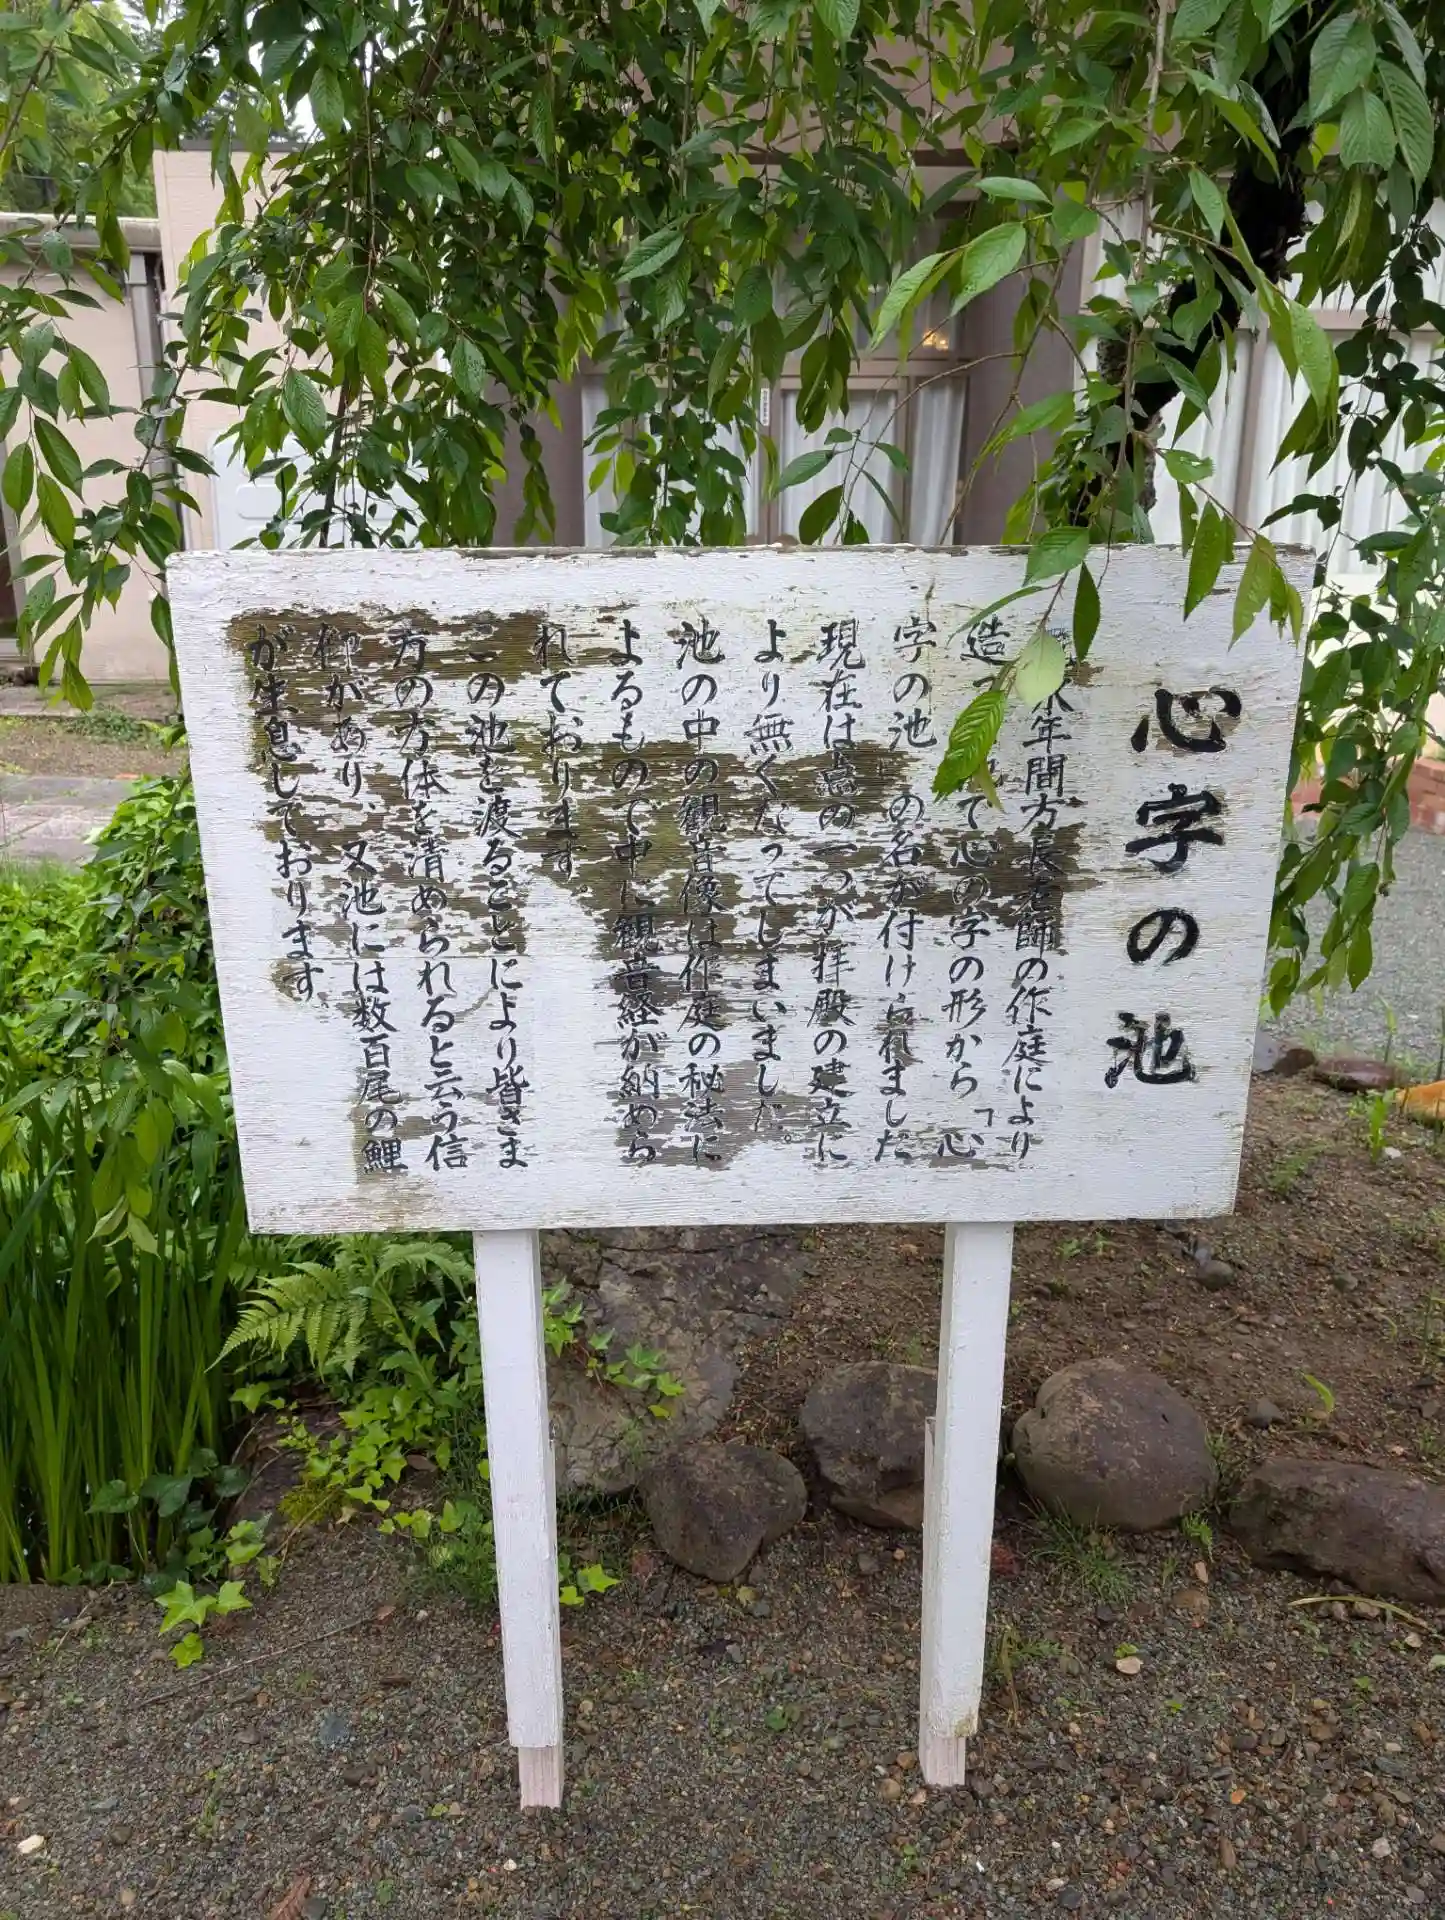 心字の池
年間方長老師の作庭により
造 て心の字の形から「心
字の池 の名が付けられました
現在は島の一つが拝殿の建立に
より無くなってしまいました。
池の中の観音像は作庭の秘法に
よるもので中に観音経が納めら
れております。
この池を渡ることにより皆さま
方の方体を清められると云う信
仰があり、又池には数百尾の鯉
が生息しております